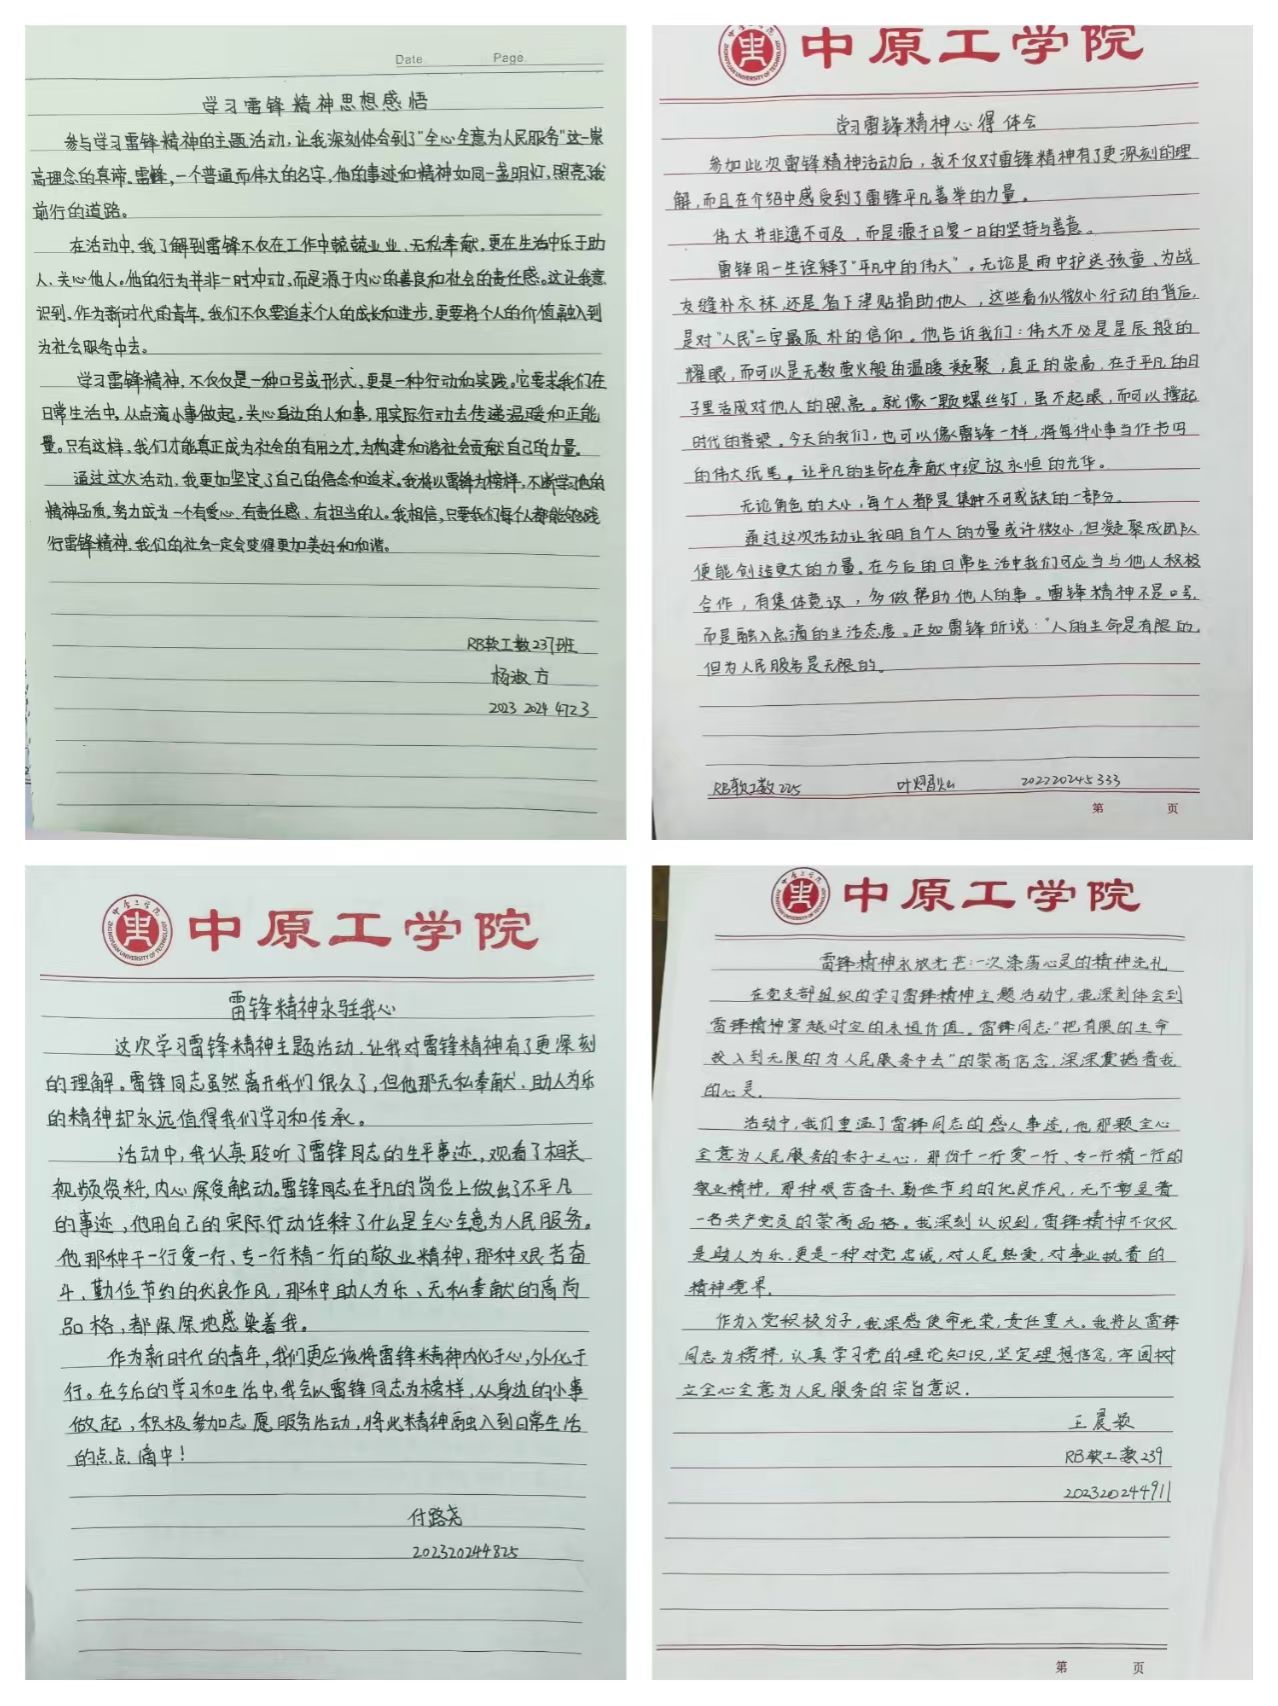 Date Page
学习雷锋精神思想感悟
参与学习雷锋精神的主题活动,让我深刻体会到了"全心全意为人民服务"这一崇
高理念的真谛。雷锋,一个普通而伟大的名字,他的事迹和精神如同一盏明灯,照亮我
前行的道路。
在活动中,我了解到雷锋不仅在工作中兢兢业业、无私奉献,更在生活中乐于助
人、关心他人。他的行为并非一时冲动,而是源于内心的善良和社会的责任感。这让我意
识到,作为新时代的青年,我们不仅要追求个人的成长和进步,更要将个人的价值融入到
为社会服务中去。
学习雷锋精神,不仅仅是一种口号或形式,更是一种行动和实践。它要求我们在
日常生活中,从点滴小事做起,关心身边的人和事,用实际行动去传递温暖和正能
量。只有这样,我们才能真正成为社会的有用之才,为构建和谐社会贡献自己的力量。
通过这次活动,我更加坚定了自己的信念和追求。我将以雷锋为榜样,不断学习他的
精神品质,努力成为一个有爱心、有责任感、有担当的人。我相信,只要我们每个人都能够践
行雷锋精神,我们的社会一定会变得更加美好和和谐。
RB软工数237班
杨淑方
2023 2024 4723
中原工学院
学习雷锋精神心得体会
参加此次雷锋精神活动后,我不仅对雷锋精神有了更深刻的理
解,而且在介绍中感受到了雷锋平凡善举的力量。
伟大并非遥不可及,而是源于日复一日的坚持与善意。
雷锋用一生诠释了"平凡中的伟大"。无论是雨中护送孩童、为战
友缝补衣袜,还是省下津贴捐助他人,这些看似微小行动的背后,
是对"人民"二字最质朴的信仰。他告诉我们:伟大不必是星辰般的
耀眼,而可以是无数萤火般的温暖凝聚,真正的崇高,在于平凡的日
子里活成对他人的照亮。就像一颗螺丝钉,虽不起眼,而可以撑起
时代的脊梁。今天的我们,也可以像雷锋一样,将每件小事当作书写
的伟大纸笔。让平凡的生命在奉献中绽放永恒的光华。
无论角色的大小,每个人都是集体不可或缺的一部分。
通过这次活动让我明白个人的力量或许微小,但凝聚成团队
便能创造更大的力量。在今后的日常生活中我们可应当与他人积极
合作,有集体意识,多做帮助他人的事。雷锋精神不是口号,
而是融入点滴的生活态度。正如雷锋所说:"人的生命是有限的,
但为人民服务是无限的。
RB软工数225 叶熠灿 202220245333
第 页
中原工学院
雷锋精神永驻我心
这次学习雷锋精神主题活动,让我对雷锋精神有了更深刻
的理解。雷锋同志虽然离开我们很久了,但他那无私奉献、助人为乐
的精神却永远值得我们学习和传承。
活动中,我认真聆听了雷锋同志的生平事迹,观看了相关
视频资料,内心深受触动。雷锋同志在平凡的岗位上做出了不平凡
的事迹,他用自己的实际行动诠释了什么是全心全意为人民服务。
他那种干一行爱一行、专一行精一行的敬业精神,那种艰苦奋
斗、勤俭节约的优良作风,那种助人为乐、无私奉献的高尚
品格,都深深地感染着我。
作为新时代的青年,我们更应该将雷锋精神内化于心,外化于
行。在今后的学习和生活中,我会以雷锋同志为榜样,从身边的小事
做起,积极参加志愿服务活动,将此精神融入到日常生活
的点点滴中!
付路尧
202320244825
中原工学院
雷锋精神永放光芒:一次涤荡心灵的精神洗礼
在党支部组织的学习雷锋精神主题活动中,我深刻体会到
雷锋精神穿越时空的永恒价值。雷锋同志"把有限的生命
投入到无限的为人民服务中去"的崇高信念,深深震撼着我
的心灵。
活动中,我们重温了雷锋同志的感人事迹,他那颗全心
全意为人民服务的赤子之心,那份干一行爱一行、专一行精一行的
敬业精神,那种艰苦奋斗、勤俭节约的优良作风,无不彰显着
一名共产党员的崇高品格。我深刻认识到,雷锋精神不仅仅
是助人为乐,更是一种对党忠诚,对人民热爱,对事业执着的
精神境界。
作为入党积极分子,我深感使命光荣,责任重大。我将以雷锋
同志为榜样,认真学习党的理论知识,坚定理想信念,牢固树
立全心全意为人民服务的宗旨意识。
王晨毅
RB软工数239
202320244911
第 页